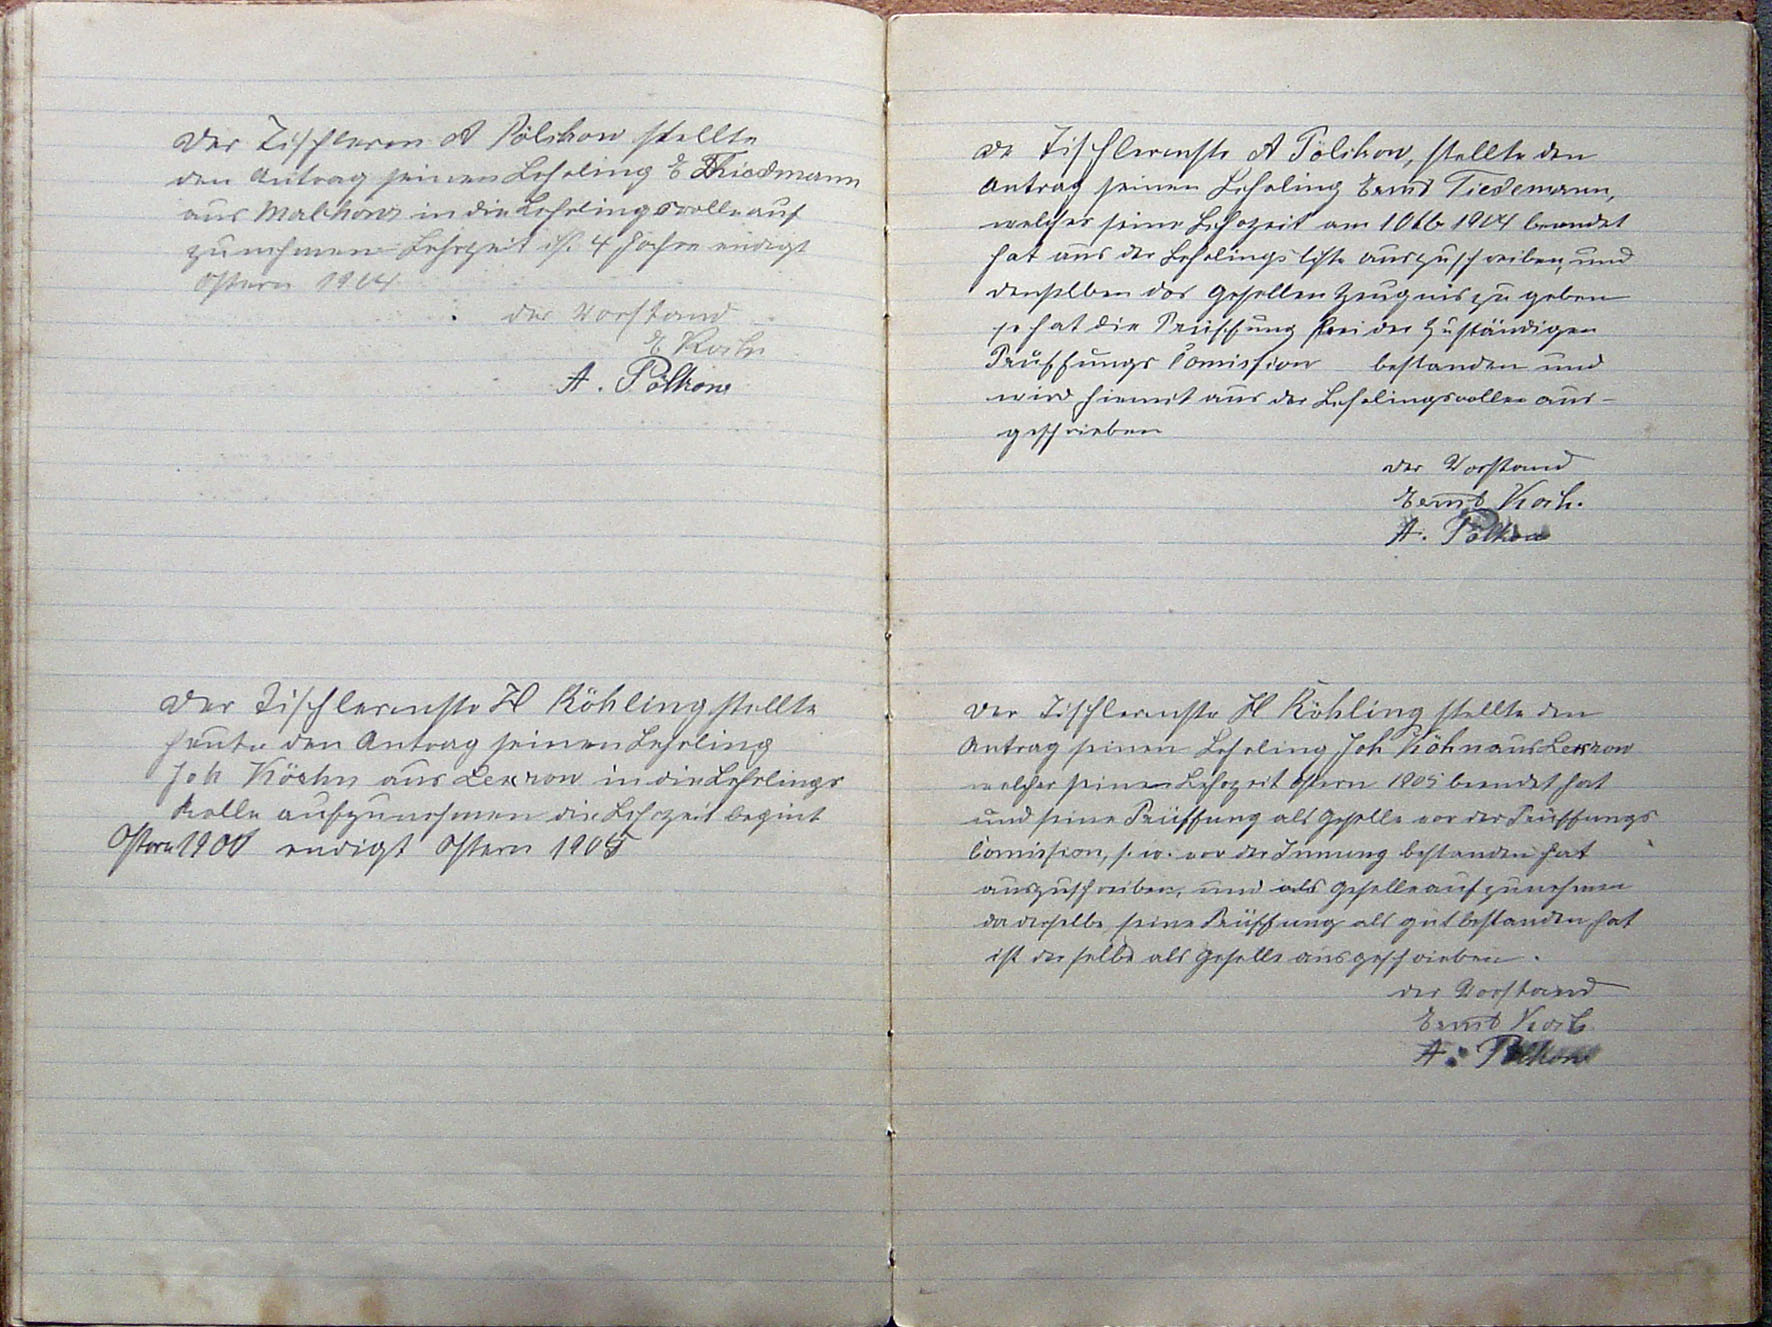 Der Tischlerm A Pölckow stellte
den Antrag seinen Lehrling E Thiedmann
aus Malchow in die Lehrlingsrolle auf
zunehmen Lehrzeit ist 4 Jahre endigt
Ostern 1904
der Vorstand
E Koch
A. Pölkow
Der Tischlermstr H Röhling stellte
heute den Antrag seinen Lehrling
Joh Köhn aus in die Lehrlings
Rolle aufzunehmen die Lehrzeit begint
Ostern 1901 endigt Ostern 1905
De Tischlermstr A Pölckow, stellte den
Antrag seinen Lehrling Ernst Tiedemann,
welcher seine Lehrzeit am 1 Otb 1904 beendet
hat aus der Lehrlingsliste auszuschreiben, und
denselben das Gesellen Zeugnis zu geben
er hat die Prüffung bei der Zuständigen
Prüffungs Comission bestanden und
wird hiermit aus der Lehrlingsrolle aus-
geschrieben
der Vorstand
Ernst Koch.
A. Pölkow
Der Tischlermstr H Röhling stellte den
Antrag seinen Lehrling Joh Köhn aus
welcher seine Lehrzeit Ostern 1905 beendet hat
und seine Prüffung als Geselle vor der Prüffungs
Comission, s. w. vor der Innung bestanden hat
auszuschreiben, und als Geselle aufzunehmen
da derselbe seine Prüffung als gut bestanden hat
ist derselbe als Geselle ausgeschrieben.
der Vorstand
Ernst Koch
A. Pölkow